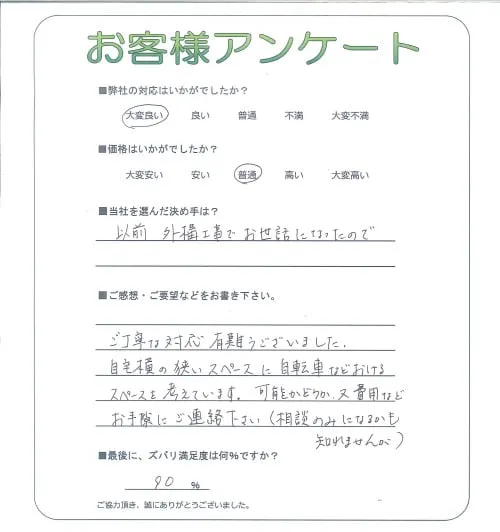 お客様アンケート
■弊社の対応はいかがでしたか？
大変良い 良い 普通 不満 大変不満
■価格はいかがでしたか？
大変安い 安い 普通 高い 大変高い
■当社を選んだ決め手は？
以前 外構工事でお世話になったので
■ご感想・ご要望などをお書き下さい。
ご丁寧な対応有難うございました．
自宅横の狭いスペースに自転車などおける
スペースを考えています。可能かどうか，又費用など
お手隙にご連絡下さい（相談のみになるかも
知れませんが）
■最後に、ズバリ満足度は何%ですか？
90 %
ご協力頂き、誠にありがとうございました。